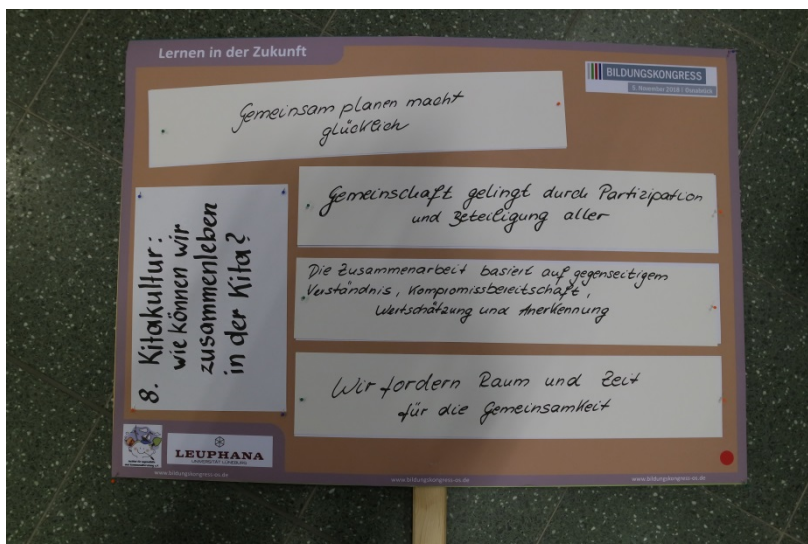 Lernen in der Zukunft
BILDUNGSKONGRESS
5. November 2018 | Osnabrück
Gemeinsam planen macht
glücklich
8. Kitakultur:
wie können wir
zusammenleben
in der Kita?
Gemeinschaft gelingt durch Partizipation
und Beteiligung aller
Die Zusammenarbeit basiert auf gegenseitigem
Verständnis, Kompromissbereitschaft,
Wertschätzung und Anerkennung
Wir fordern Raum und Zeit
für die Gemeinsamkeit
LEUPHANA
UNIVERSITÄT LÜNEBURG
www.bildungskongress-os.de
www.bildungskongress-os.de
www.bildungskongress-os.de